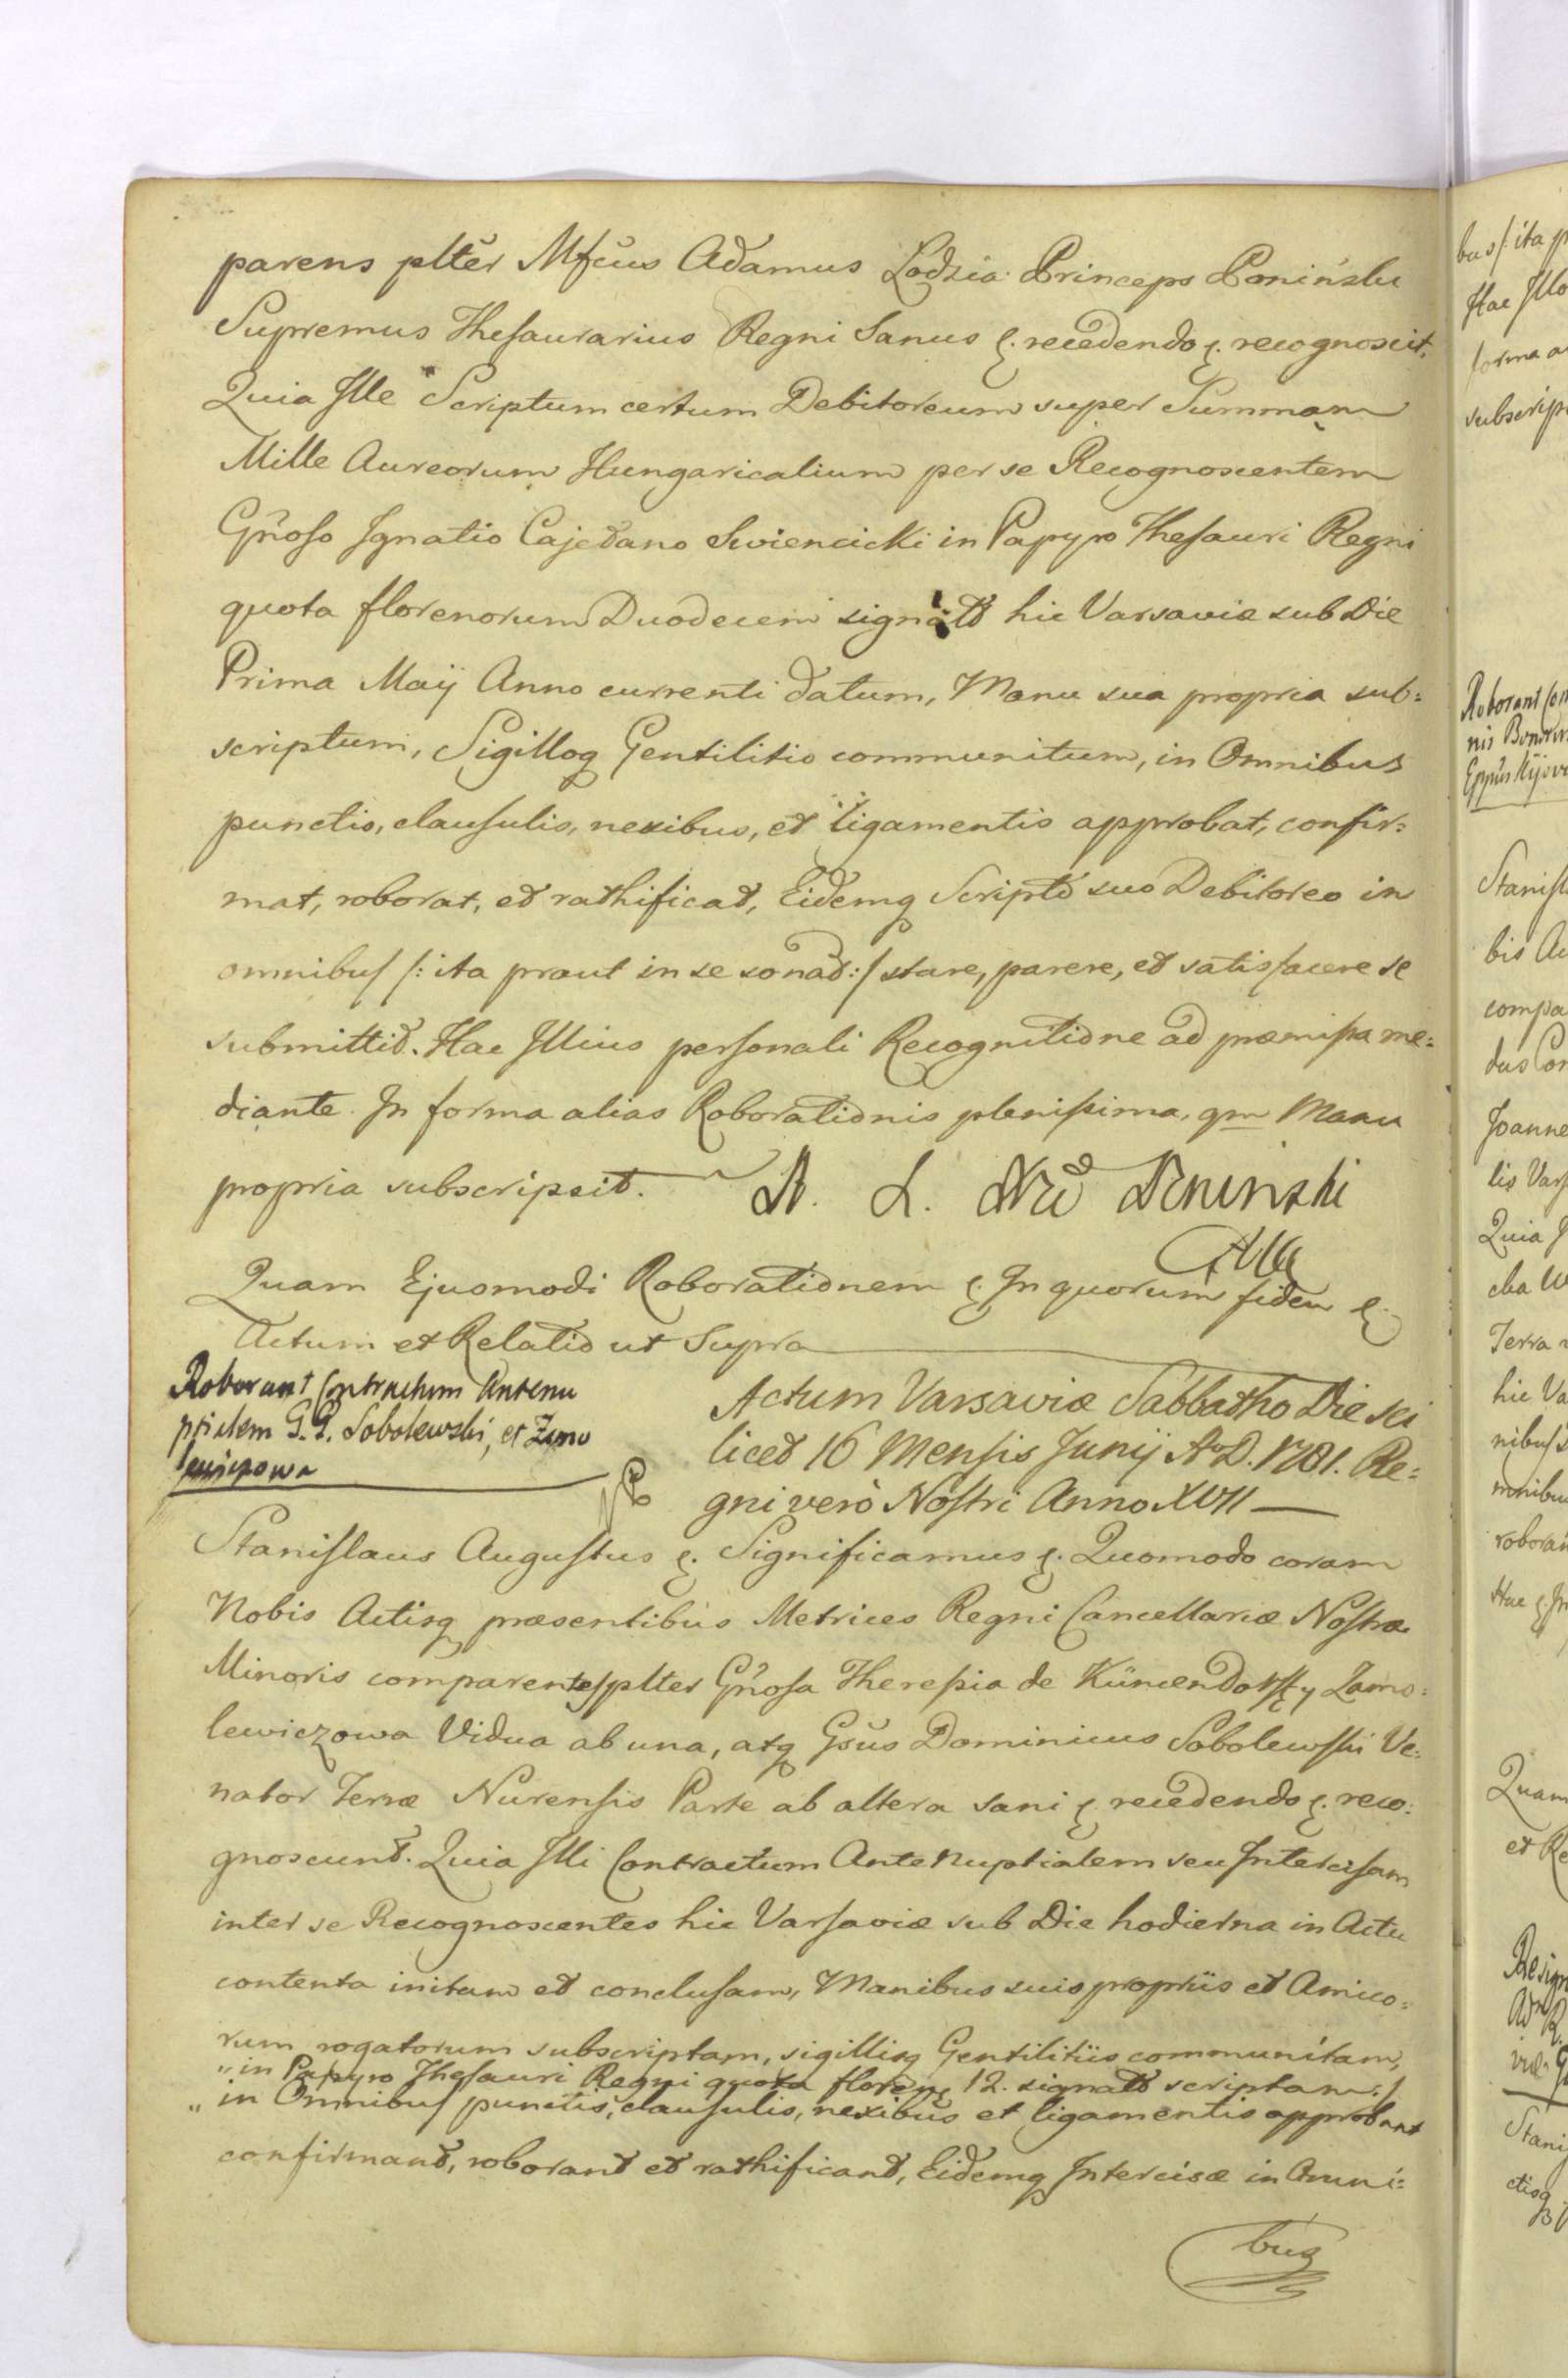 parens pltĕr Mfcus Adamus Lodzia Princeps Poniński
Supremus Thesaurarius Regni Sanus &. recedendo &. recognoscit.
Quia Ille Scriptum certum Debitoreum super Summam
Mille Aureorum Hungaricalium per se Recognoscentem
Gñoso Ignatio Cajetano Swiencicki in Papyro Thesauri Regni
quota florenorum Duodecem signato hic Varsaviæ sub Die
Prima Maÿ Anno currenti datum, Manu sua propria sub=
scriptum, Sigilloq Gentilitio communitum, in Omnibus
punctis, clausulis, nexibus, et ligamentis approbat, confir=
mat, roborat, et rathificat, Eidemq Scripto suo Debitoreo in
omnibus /: ita prout in se sonat :/ stare, parere, et satisfacere se
submittit. Hac Illius personali Recognitione ad præmissa me=
diante. In forma alias Roborationis plenissima, qm Manu
propria subscripsit.
A. L. Poninski
Quam Ejusmodi Roborationem &. In quorum fidem &
Actum et Relatio ut Supra
Roborant Contractum Antenu
ptialem G. G. Sobolewski, et Zamo
lewiczowa
Actum Varsaviæ Sabbatho Die sci
licet 16 Mensis Junij A. D. 1781. Re=
gni vero Nostri Anno XVII
Stanislaus Augustus &. Significamus &. Quomodo coram
Nobis Actisq præsentibus Metrices Regni Cancellariæ Nostræ
Minoris comparentes plter Gñosa Theresia de Zamo=
lewiczowa Vidua ab una, atq Gsus Dominicus Sobolewski Ve=
nator Terræ Nurensis Parte ab altera sani &. recedendo &. reco=
gnoscunt. Quia Illi Contractum Antenuptialem seu Intercisam
inter se Recognoscentes hic Varsaviæ sub Die hodierna in Actu
contenta initam et conclusam, Manibus suis propriis et Amico=
rum rogatorum subscriptam, sigillisq Gentilitiis communitam,
"in Papyro Thesauri Regni quota floren 12. signato scriptam :/
"in Omnibus punctis, clausulis, nexibus et ligamentis approbant
confirmant, roborant et rathificant, Eidemq Intercisæ in Omni=
bus